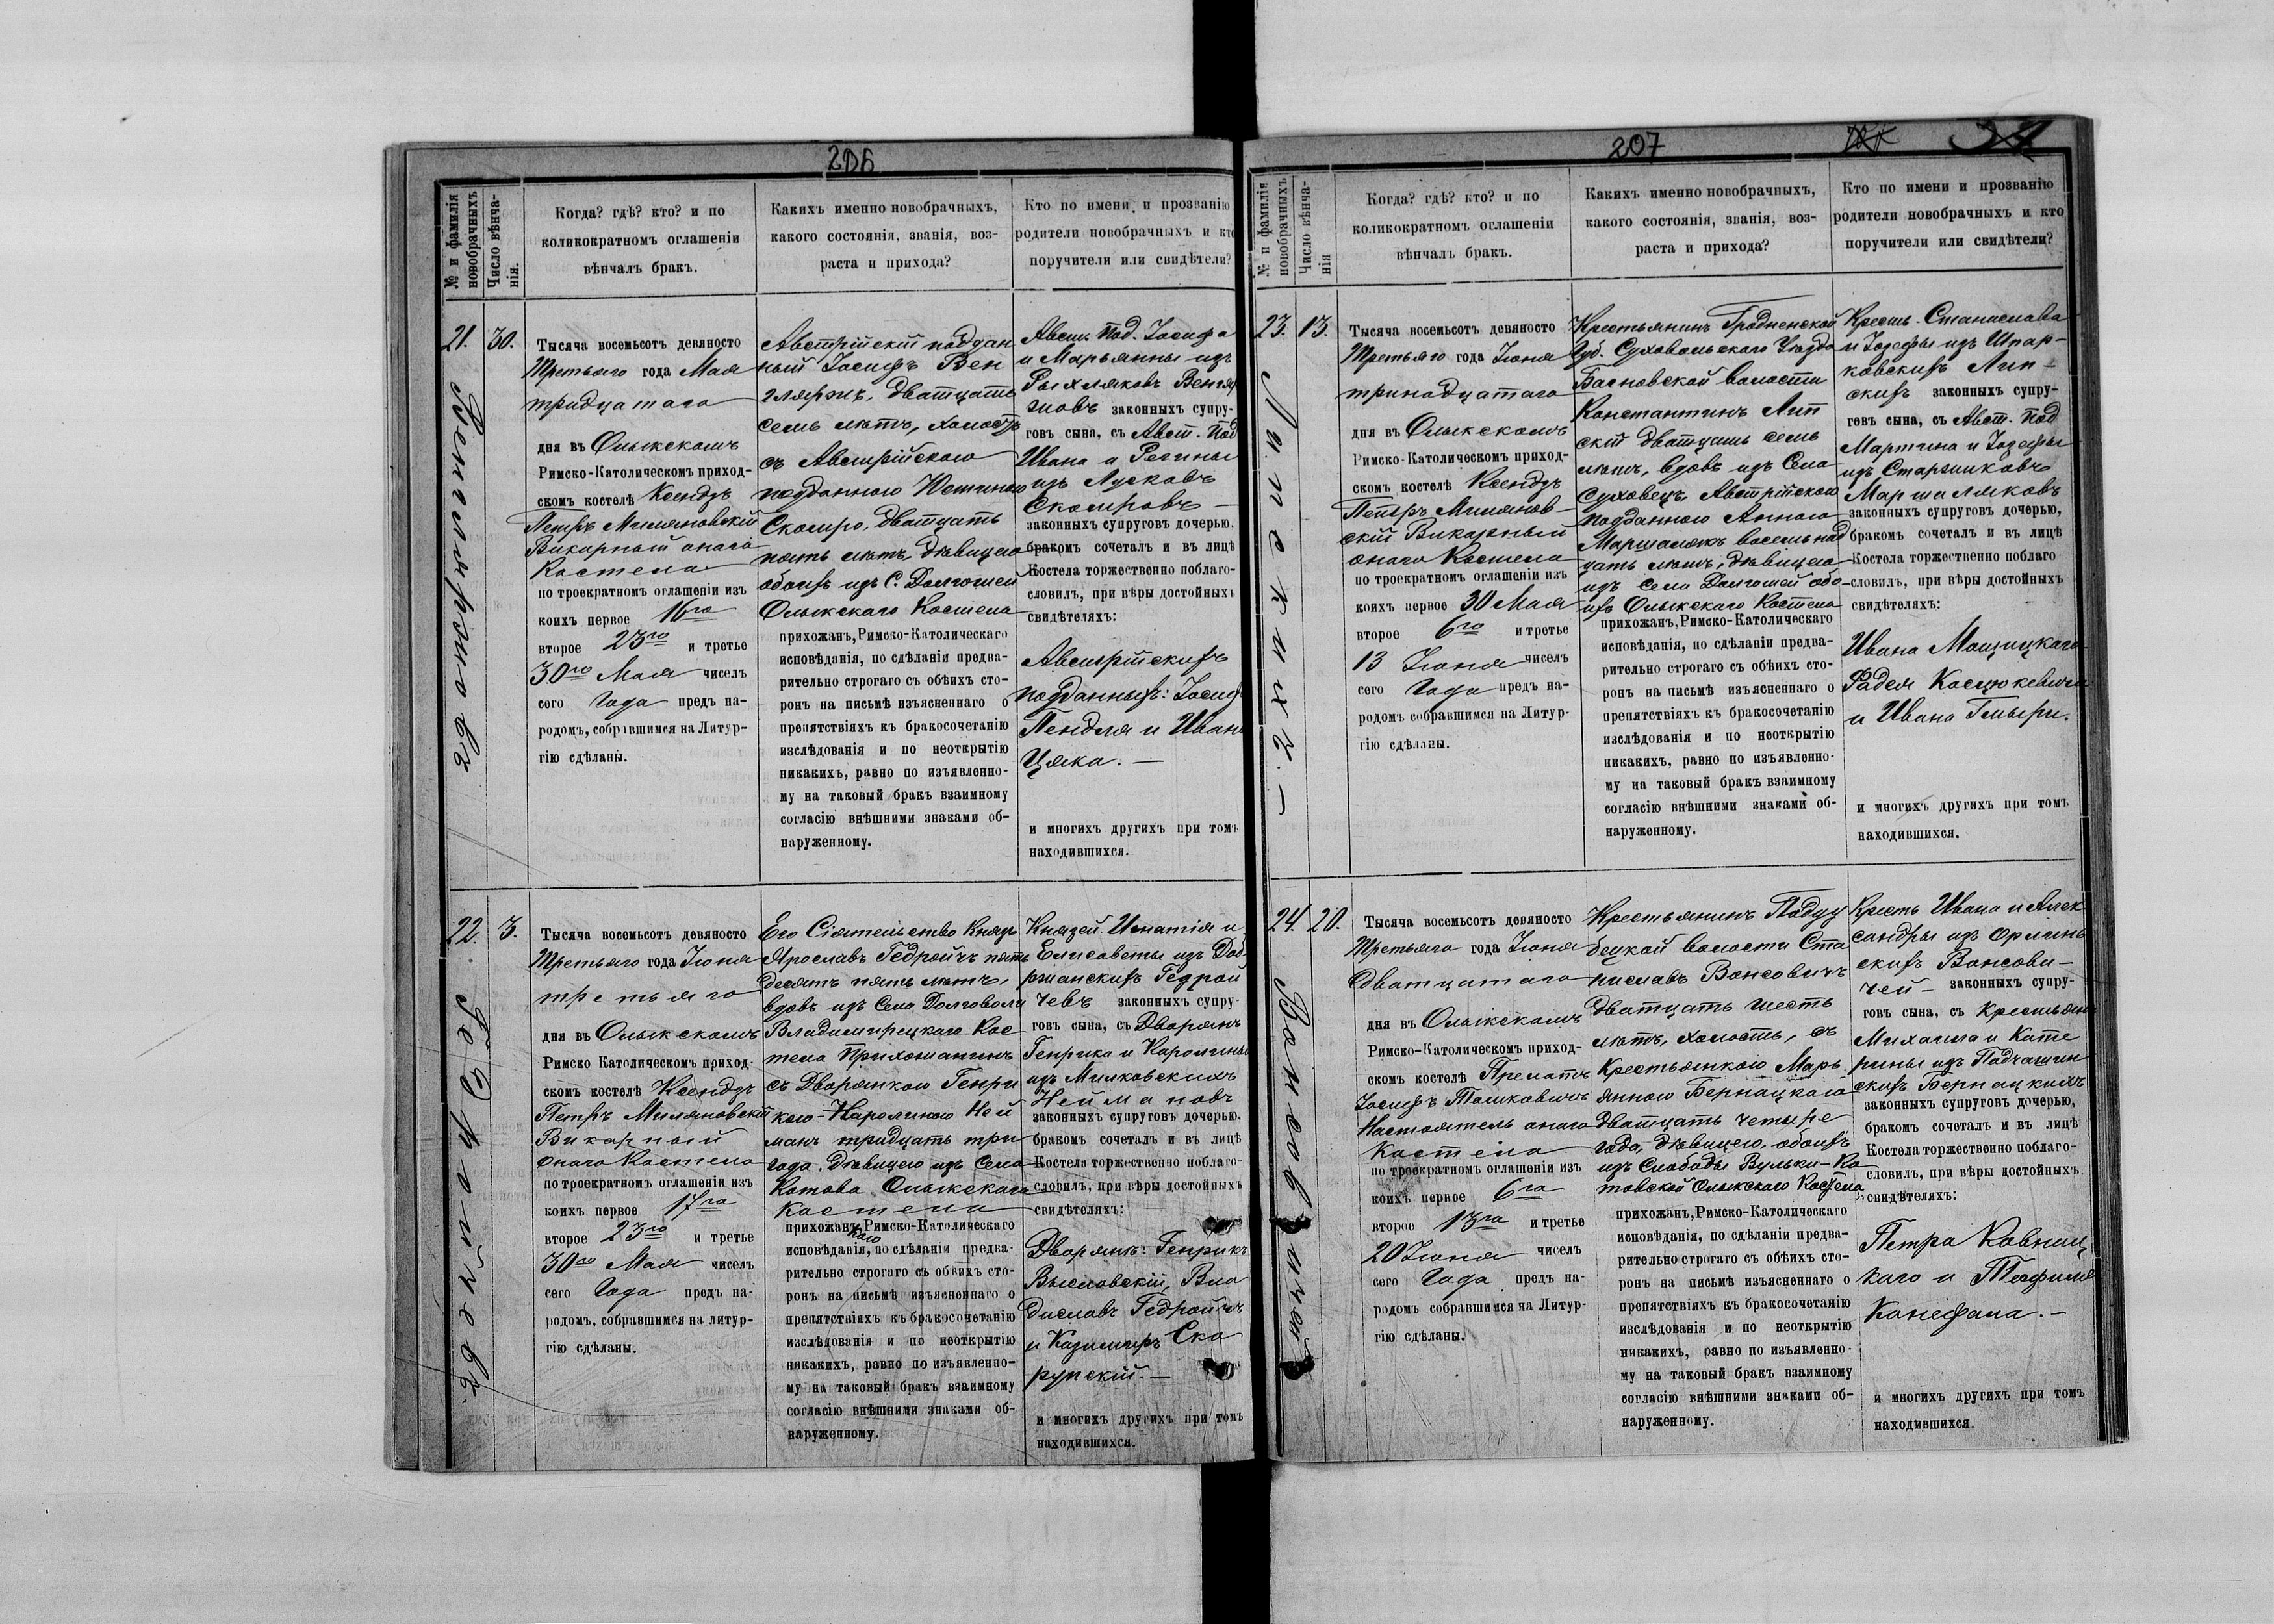 206
№ и фамилія
новобрачныхъ
Число вѣнча-
нія.
Когда? гдѣ? кто? и по
коликократномъ оглашеніи
вѣнчалъ бракъ.
Какихъ именно новобрачныхъ,
какого состоянія, званія, воз-
раста и прихода?
Кто по имени и прозванію
родители новобрачныхъ и кто
поручители или свидѣтели?
21.
30.
Тысяча восемьсотъ девяносто
Третьяго года Мая
тридцатаго
дня въ Олыкскомъ
Римско-Католическомъ приход-
скомъ костелѣ Ксендзъ
Петръ Миляновскій
Викарный онаго
Костела
по троекратномъ оглашеніи изъ
коихъ первое 16го
второе 23го и третье
30го Мая чиселъ
сего Года предъ на-
родомъ, собравшимся на Литур-
гію сдѣланы.
Австрійскій поддан
ный Іосифъ Вен
гляржъ, двадцать
семь лѣтъ, холостъ
съ Австрійскою
подданною Юстиною
Скомиро, двадцать
пять лѣтъ, дѣвицею
обоихъ изъ С. Долгошей
Олыкскаго Костела
прихожанъ, Римско-Католическаго
исповѣданія, по сдѣланіи предва-
рительно строгаго съ обѣихъ сто-
ронъ на письмѣ изъясненнаго о
препятствіяхъ къ бракосочетанію
изслѣдованія и по неоткрытію
никакихъ, равно по изъявленно-
му на таковый бракъ взаимному
согласію внѣшними знаками об-
наруженному.
Австр. Под. Іосифа
и Марьянны изъ
Рыхляковъ Венгляр
жовъ законныхъ супру-
говъ сына, съ Авст. Под
Ивана и Регины
изъ Лусковъ
Скомировъ
законныхъ супруговъ дочерью,
бракомъ сочеталъ и въ лицѣ
Костела торжественно поблаго-
словилъ, при вѣры достойныхъ
свидѣтеляхъ:
Австрійскихъ
подданныхъ: Іосиф
Пендля и Ивана
Цяка. —
и многихъ другихъ при томъ
находившихся.
22.
3.
Гедройчевъ.
Тысяча восемьсотъ девяносто
Третьяго года Іюня
третьяго
дня въ Олыкскомъ
Римско Католическомъ приход-
скомъ костелѣ Ксендзъ
Петръ Миляновскій
Викарный
онаго Костела
по троекратномъ оглашеніи изъ
коихъ первое 17го
второе 23го и третье
30го Мая чиселъ
сего Года предъ на-
родомъ, собравшимся на литур-
гію сдѣланы.
Его Сіятельство Князь
Ярославъ Гедройчъ пять
десятъ пять лѣтъ,
вдовъ изъ Села Долговоли
Владимирецкаго Кос
тела Прихожанинъ
съ Дворянкою Генри
кою-Каролиною Ней
манъ тридцать три
года, дѣвицею изъ Села
Котова Олыкскаго
Костела
прихожанкою, Римско-Католическаго
исповѣданія, по сдѣланіи предва-
рительно строгаго съ обѣихъ сто-
ронъ на письмѣ изъясненнаго о
препятствіяхъ къ бракосочетанію
изслѣдованія и по неоткрытію
никакихъ, равно по изъявленно-
му на таковый бракъ взаимному
согласію внѣшними знаками об-
наруженному.
Князей Игнатія и
Елисаветы изъ Доб
ржанскихъ Гедрой
чевъ законныхъ супру-
говъ сына, съ Дворянъ
Генрика и Каролины
изъ Милковскихъ
Неймановъ
законныхъ супруговъ дочерью,
бракомъ сочеталъ и въ лицѣ
Костела торжественно поблаго-
словилъ, при вѣры достойныхъ
свидѣтеляхъ:
Дворянъ: Генрикъ
Высловскій, Вла
диславъ Гедройчъ
и Казимиръ Ско
рупскій. —
и многихъ другихъ при томъ
находившихся.
207
№ и фамилія
новобрачныхъ
Число вѣнча-
нія
Когда? гдѣ? кто? и по
коликократномъ оглашеніи
вѣнчалъ бракъ.
Какихъ именно новобрачныхъ,
какого состоянія, званія, воз-
раста и прихода?
Кто по имени и прозванію
родители новобрачныхъ и кто
поручители или свидѣтели?
23.
13.
Липскихъ. —
Тысяча восемьсотъ девяносто
Третьяго года Іюня
тринадцатаго
дня въ Олыкскомъ
Римско-Католическомъ приход-
скомъ костелѣ Ксендзъ
Петръ Милянов-
скій Викарный
онаго Костела
по троекратномъ оглашеніи изъ
коихъ первое 30 Мая
второе 6го и третье
13 Іюня чиселъ
сего Года предъ на-
родомъ собравшимся на Литур-
гію сдѣланы.
Крестьянинъ Гродненской
Губ. Суховольскаго Уѣзда
Багновской волости
Константинъ Лип
скій двадцать семь
лѣтъ, вдовъ изъ Села
Суховецъ, Австрійскою
подданною Анною
Маршалякъ восемьнад
цать лѣтъ, дѣвицею
изъ села Долгошей обо-
ихъ Олыкскаго Костела
прихожанъ, Римско-Католическаго
исповѣданія, по сдѣланіи предва-
рительно строгаго съ обѣихъ сто-
ронъ на письмѣ изъясненнаго о
препятствіяхъ къ бракосочетанію
изслѣдованія и по неоткрытію
никакихъ, равно по изъявленно-
му на таковый бракъ взаимному
согласію внѣшними знаками об-
наруженному.
Крестъ. Станислава
и Іозефы изъ Шпар-
ковскихъ Лип-
скихъ законныхъ супру-
говъ сына, съ Авст. Под
Мартина и Іозефы
изъ Старжиковъ
Маршаляковъ
законныхъ супруговъ дочерью,
бракомъ сочеталъ и въ лицѣ
Костела торжественно поблаго-
словилъ, при вѣры достойныхъ
свидѣтеляхъ:
Ивана Мощицкаго
Фадея Косцюкевича
и Ивана Гмыри.
и многихъ другихъ при томъ
находившихся.
24.
20.
Вонсовичей
Тысяча восемьсотъ девяносто
Третьяго года Іюня
двадцатаго
дня въ Олыкскомъ
Римско-Католическомъ приход-
скомъ костелѣ Прелатъ
Іосифъ Томковичъ
Настоятель онаго
Костела
по троекратномъ оглашеніи изъ
коихъ первое 6го
второе 13го и третье
20 Іюня чиселъ
сего Года предъ на-
родомъ собравшимся на Литур-
гію сдѣланы.
Крестьянинъ Поддуд
бецкой волости Ста
ниславъ Вонсовичъ
двадцать шесть
лѣтъ, холостъ, съ
Крестьянкою Марь
янною Бернацкаю
двадцать четыре
года, дѣвицею, обоихъ
изъ Слободы Вульки-Ко
товской Олыкскаго Костела
прихожанъ, Римско-Католическаго
исповѣданія, по сдѣланіи предва-
рительно строгаго съ обѣихъ сто-
ронъ на письмѣ изъясненнаго о
препятствіяхъ къ бракосочетанію
изслѣдованія и по неоткрытію
никакихъ, равно по изъявленно-
му на таковый бракъ взаимному
согласію внѣшними знаками об-
наруженному.
Крестъ Ивана и Алек
сандры изъ Орлинь
скихъ Вонсови-
чей — законныхъ супру-
говъ сына, съ Крестьянъ
Михаила и Кате
рины изъ Подчашин
скихъ Бернацкихъ
законныхъ супруговъ дочерью,
бракомъ сочеталъ и въ лицѣ
Костела торжественно поблаго-
словилъ, при вѣры достойныхъ
свидѣтеляхъ:
Петра Ковниц
каго и Теофиля
Канефала. —
и многихъ другихъ при томъ
находившихся.